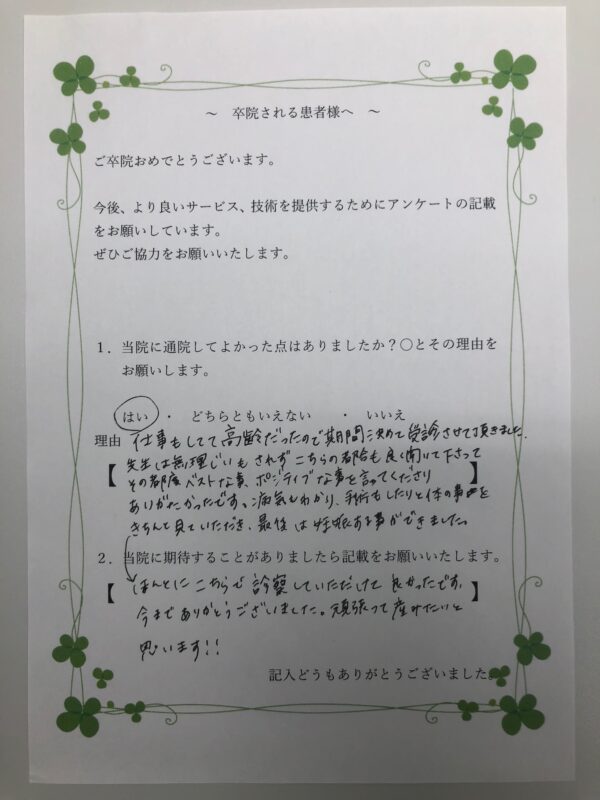 ～ 卒院される患者様へ ～
ご卒院おめでとうございます。
今後、より良いサービス、技術を提供するためにアンケートの記載
をお願いしています。
ぜひご協力をお願いいたします。
１．当院に通院してよかった点はありましたか？○とその理由を
お願いします。
はい ・ どちらともいえない ・ いいえ
理由 仕事もしてて高齢だったので期間決めて受診させて頂きました。
【 先生は無理じいもされずこちらの都合も良く聞いて下さって
その都度ベストな事、ポジティブな事を言ってくださり
ありがたかったです。病気もわかり、手術もしたりと体の事を
きちんと見ていただき、最後は妊娠する事ができました。 】
２．当院に期待することがありましたら記載をお願いいたします。
【 ほんとにこちらで診察していただけて良かったです。 】
今までありがとうございました。頑張って産みたいと
思います!!
記入どうもありがとうございました。